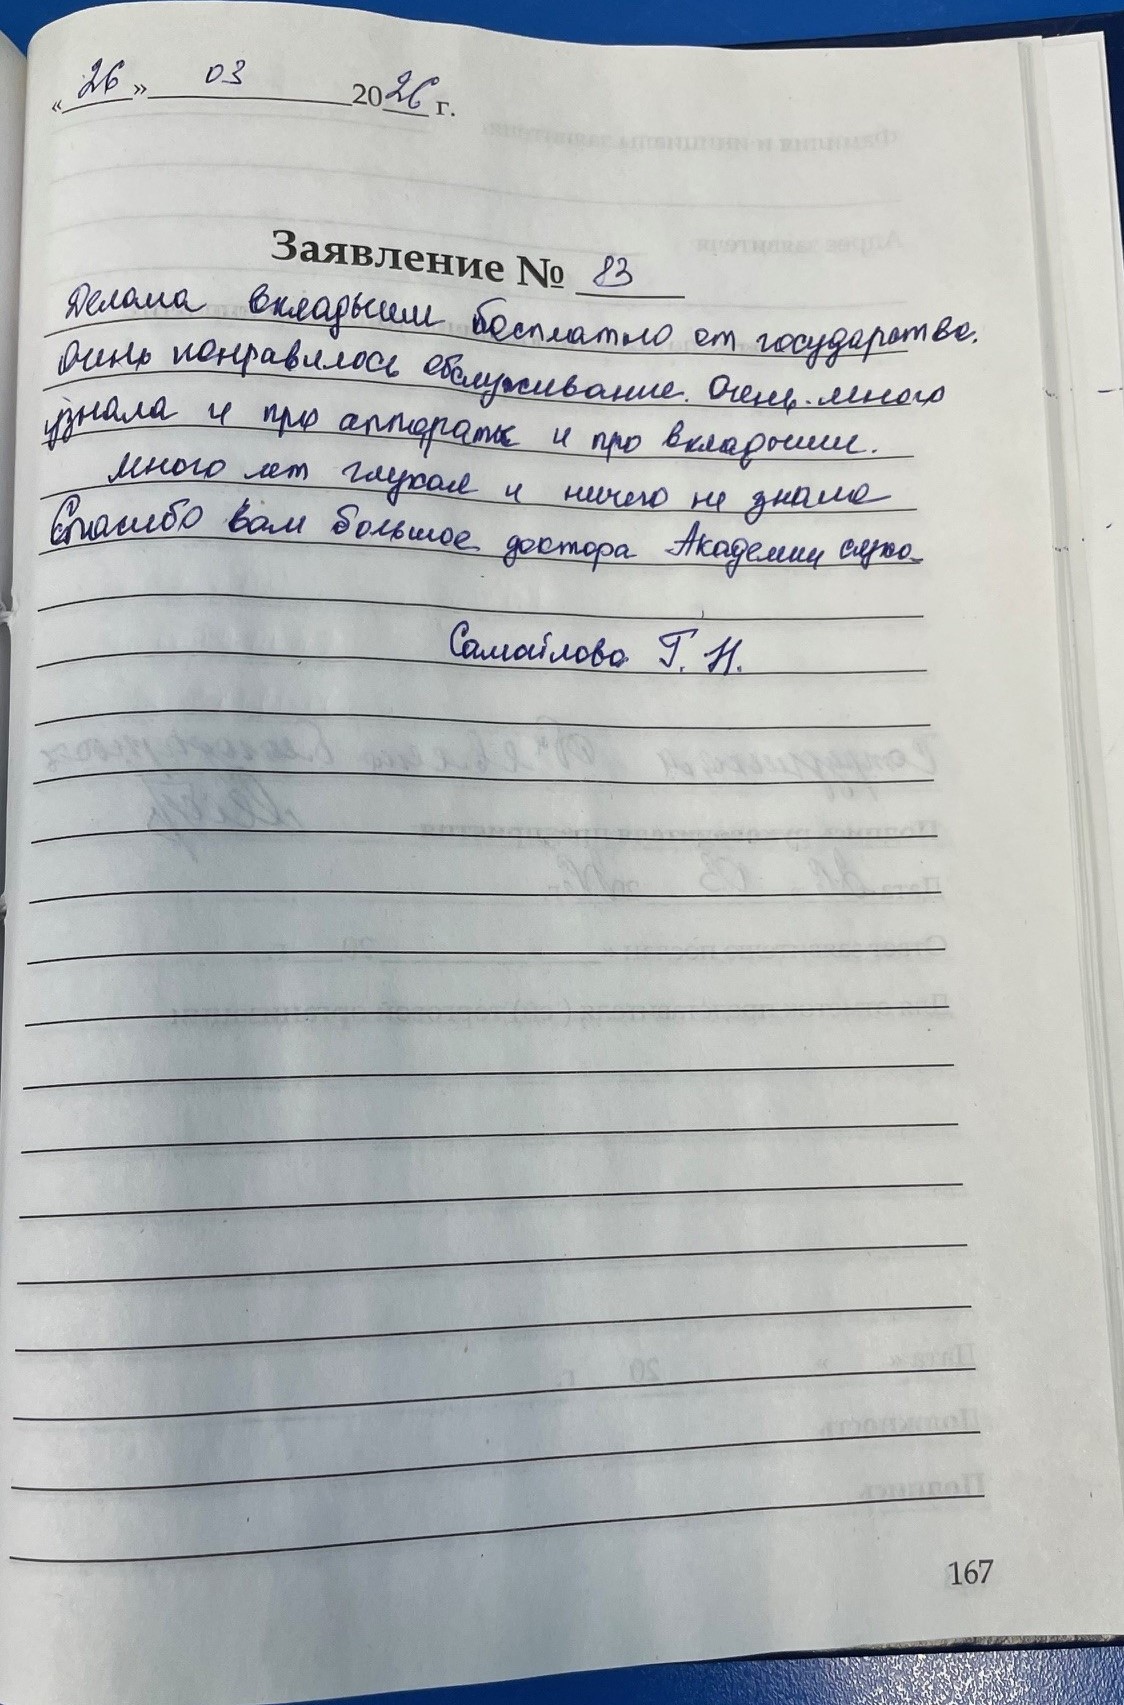 «26» 03 2026 г.
Заявление № 83
Делала вкладыши бесплатно от государства.
Очень понравилось обслуживание. Очень много
узнала и про аппараты и про вкладыши.
Много лет глухая и ничего не знала
Спасибо вам большое доктора Академии слуха
Самайлова Г. Н.
167